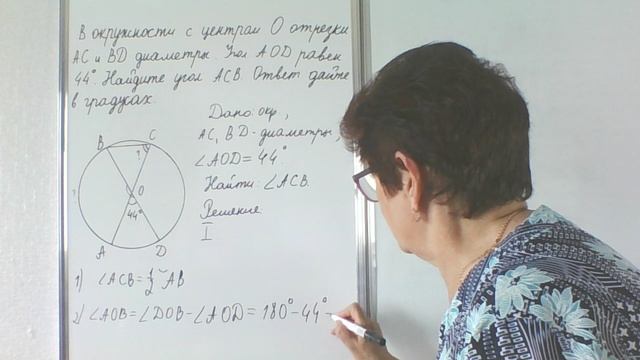 В окружности с центром O отрезки
AC и BD диаметры. Угол AOD равен
44°. Найдите угол ACB. Ответ дайте
в градусах.
Дано: окр.,
AC, BD - диаметры,
∠AOD = 44°.
Найти: ∠ACB.
Решение
I
B C
?
? O
44°
A D
1) ∠ACB = 1/2 ◡AB
2) ∠AOB = ∠DOB - ∠AOD = 180° - 44°